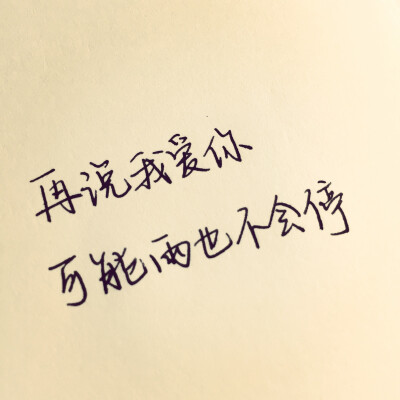 再说我爱你
可能雨也不会停